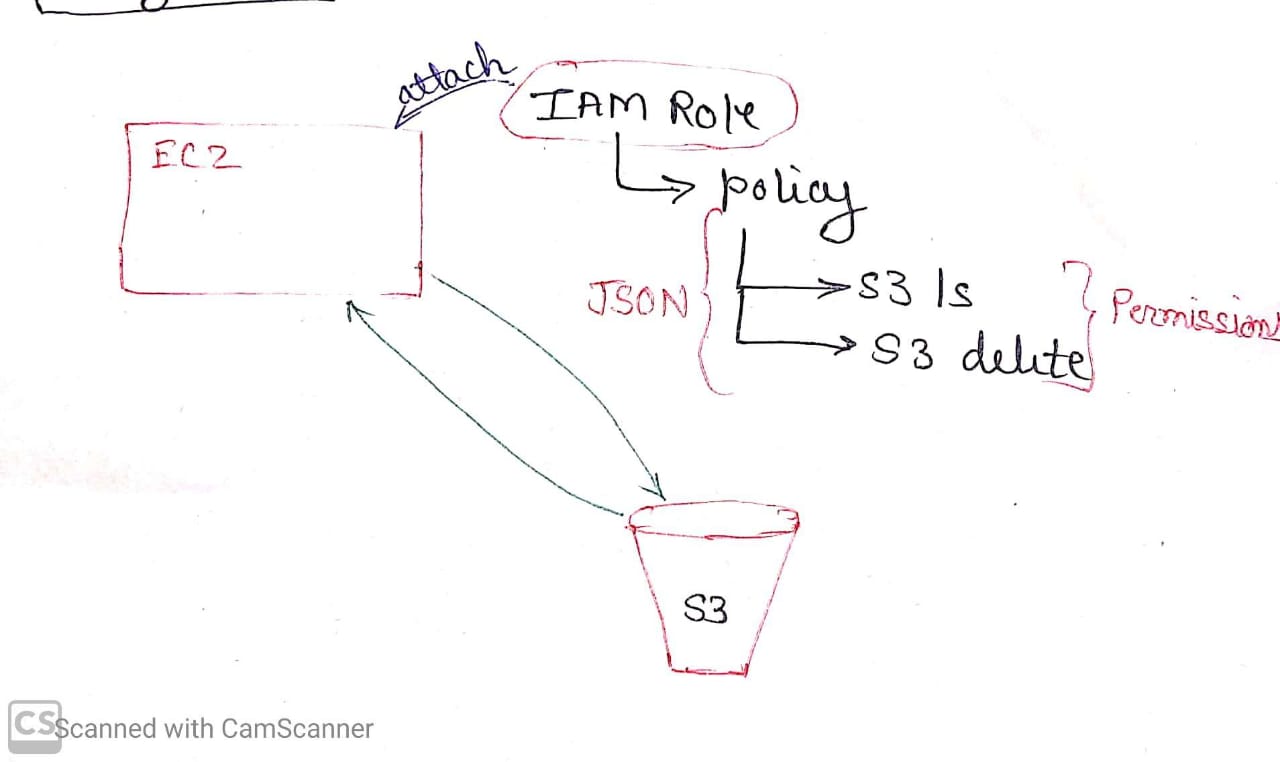 attach
IAM Role
EC2
policy
JSON
S3 ls
S3 delete
Permission
S3
CS
Scanned with CamScanner